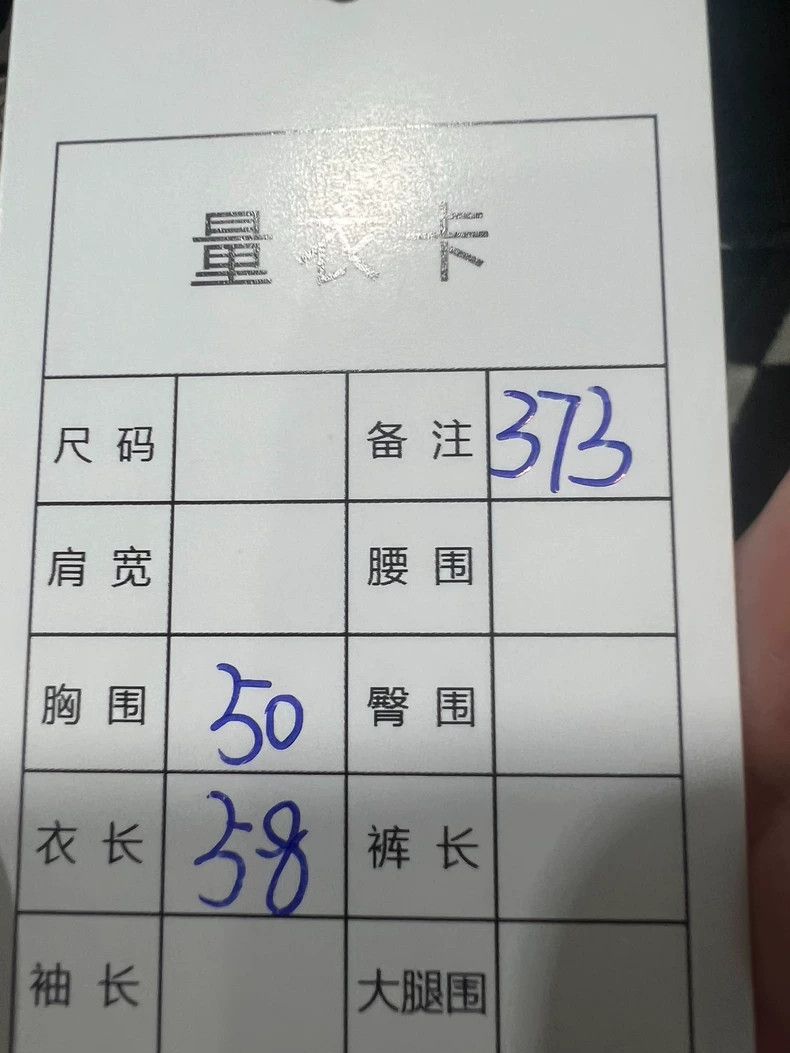 量衣卡
尺码 备注 373
肩宽 腰围
胸围 50 臀围
衣长 58 裤长
袖长 大腿围